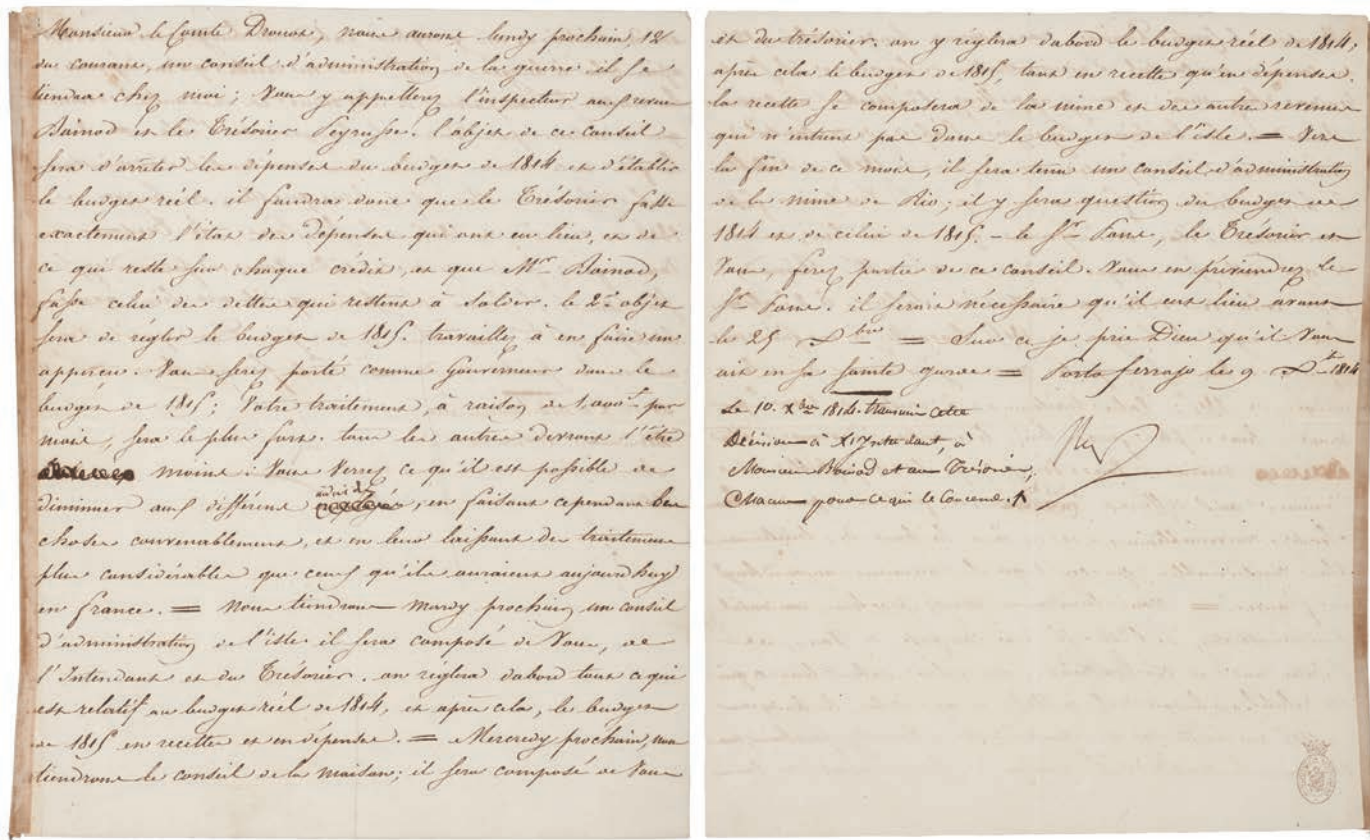 Monsieur le Comte Drouot, nous aurons lundy prochain, 12
du courant, un conseil d'administration de la guerre. il se
tiendra chez moi; Vous y appellerez l'inspecteur aux revues
Boinod et le Trésorier Peyrusse. l'objet de ce conseil
sera d'arrêter les dépenses du budget de 1814 et d'établir
le budget réel. il faudra donc que le Trésorier fasse
exactement l'état des dépenses qui ont eu lieu, et de
ce qui reste sur chaque crédit, et que Mr Boinod,
fasse celui des dettes qui restent à solder. le 2d objet
sera de régler le budget de 1815. travaillez à en faire un
apperçu. Vous serez porté comme Gouverneur dans le
budget de 1815; Votre traitement, à raison de 1,000f par
mois, sera le plus fort. tous les autres devront l'être
moins: Vous verrez ce qu'il est possible de
diminuer aux différens, en faisant cependant les
choses convenablement, et en leur laissant des traitemens
plus considérables que ceux qu'ils auraient aujourd'huy
en france. = Nous tiendrons mardy prochain un conseil
d'administration de l'isle il sera composé de Vous, de
l'Intendant et du Trésorier. on réglera dabord tout ce qui
est relatif au budget réel de 1814, et après cela, le budget
de 1815 en recette et en dépense. = Mercredy prochain, nous
tiendrons le conseil de la maison; il sera composé de Vous
et du trésorier. on y réglera dabord le budget réel de 1814,
après cela le budget de 1815, tant en recette qu'en dépense.
la recette se composera de la mine et des autres revenus
qui n'entrent pas dans le budget de l'isle. = Vers
la fin de ce mois, il sera tenu un conseil d'administration
de la mine de Rio; il y sera question du budget de
1814 et de celui de 1815. - le Sr Pons, le Trésorier et
Vous, ferez partie de ce conseil. Vous en préviendrez le
Sr Pons. il serait nécessaire qu'il eut lieu avant
le 25 Dbre = Sur ce je prie Dieu qu'il Vous
ait en sa sainte garde = Porto ferrajo le 9 Dbre 1814
Le 10. Xbre 1814. transmis cette
Décision à l'Intendant, à
Monsieur Boinod et au Trésorier,
Chacun pour ce qui le Concerne.